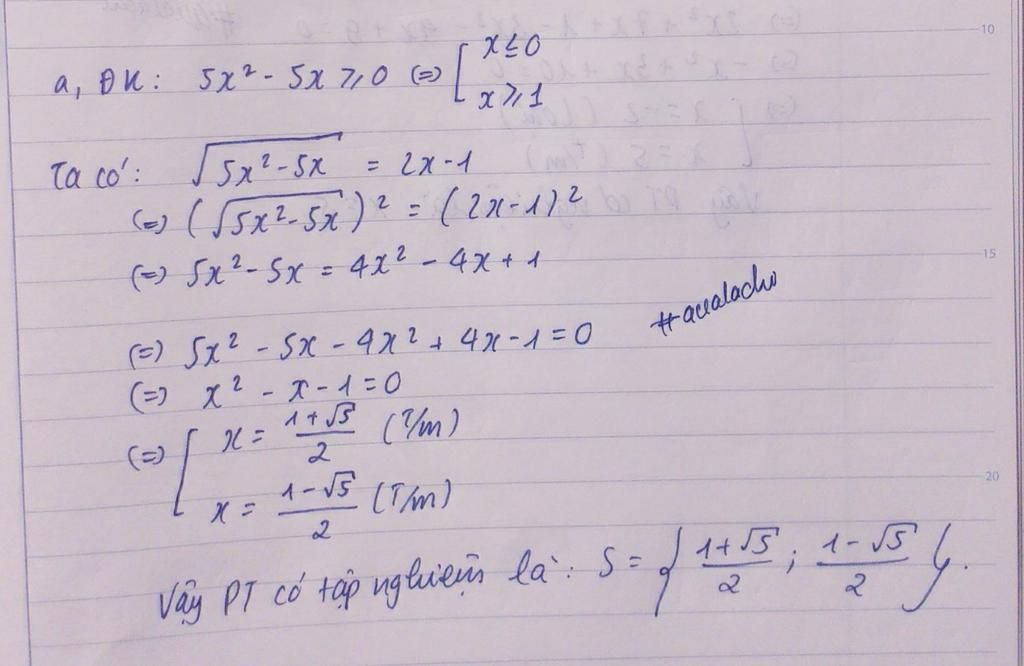 a, ĐK: 5x² - 5x ≥ 0 (=) [ x ≤ 0
x ≥ 1
Ta có: √(5x² - 5x) = 2x - 1
(=) (√(5x² - 5x))² = (2x - 1)²
(=) 5x² - 5x = 4x² - 4x + 1
(=) 5x² - 5x - 4x² + 4x - 1 = 0
(=) x² - x - 1 = 0
(=) [ x = (1+√5)/2 (T/m)
x = (1-√5)/2 (T/m)
Vậy PT có tập nghiệm là: S = { (1+√5)/2 ; (1-√5)/2 }.
10
15
20